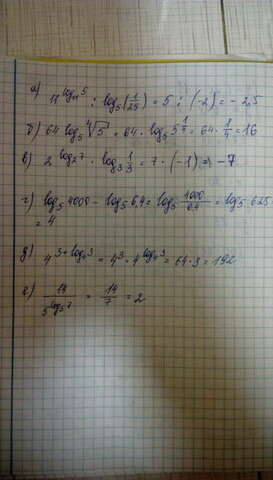 а) 11^(log₁₁5) : log₅(1/25) = 5 : (-2) = -2,5
б) 64 log₅ ⁴√5 = 64 · log₅ 5^(1/4) = 64 · 1/4 = 16
в) 2^(log₂7) · log₃ 1/3 = 7 · (-1) = -7
г) log₅ 4000 - log₅ 6,4 = log₅ 4000/6,4 = log₅ 625
= 4
д) 4^(3+log₄3) = 4³ · 4^(log₄3) = 64 · 3 = 192
е) 14/5^(log₅7) = 14/7 = 2